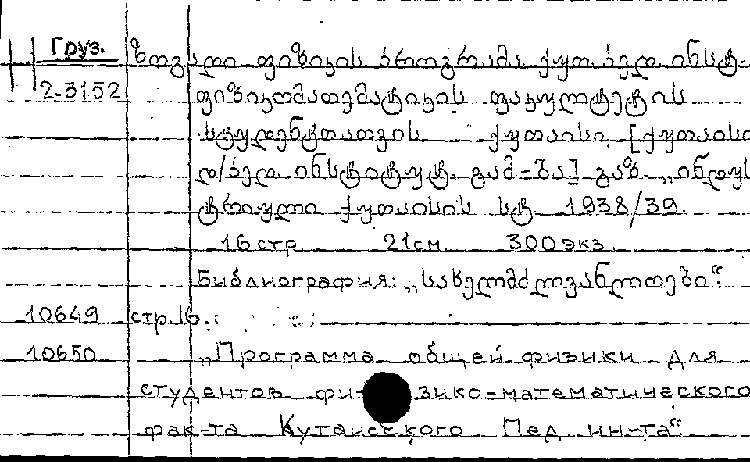 Груз. ზოგადი ფიზიკის პროგრამა ქუთ. პედ. ინსტ.
2-3152 ფიზიკომათემატიკის ფაკულტეტის
სტუდენტთათვის ქუთაისი, [ქუთაისი
პ/პედ. ინსტიტუტ. გამ-ბა] გაზ. „ინდუს
ტრიული ქუთაისის სტ. 1938/39.
16 стр 21 см 300 экз.
Библиография: „სახელმძღვანლოები“.
10649 стр. 16.
10650 „Программа общей физики для
студентов физико-математического
фак-та Кутаисского Пед. ин-та“